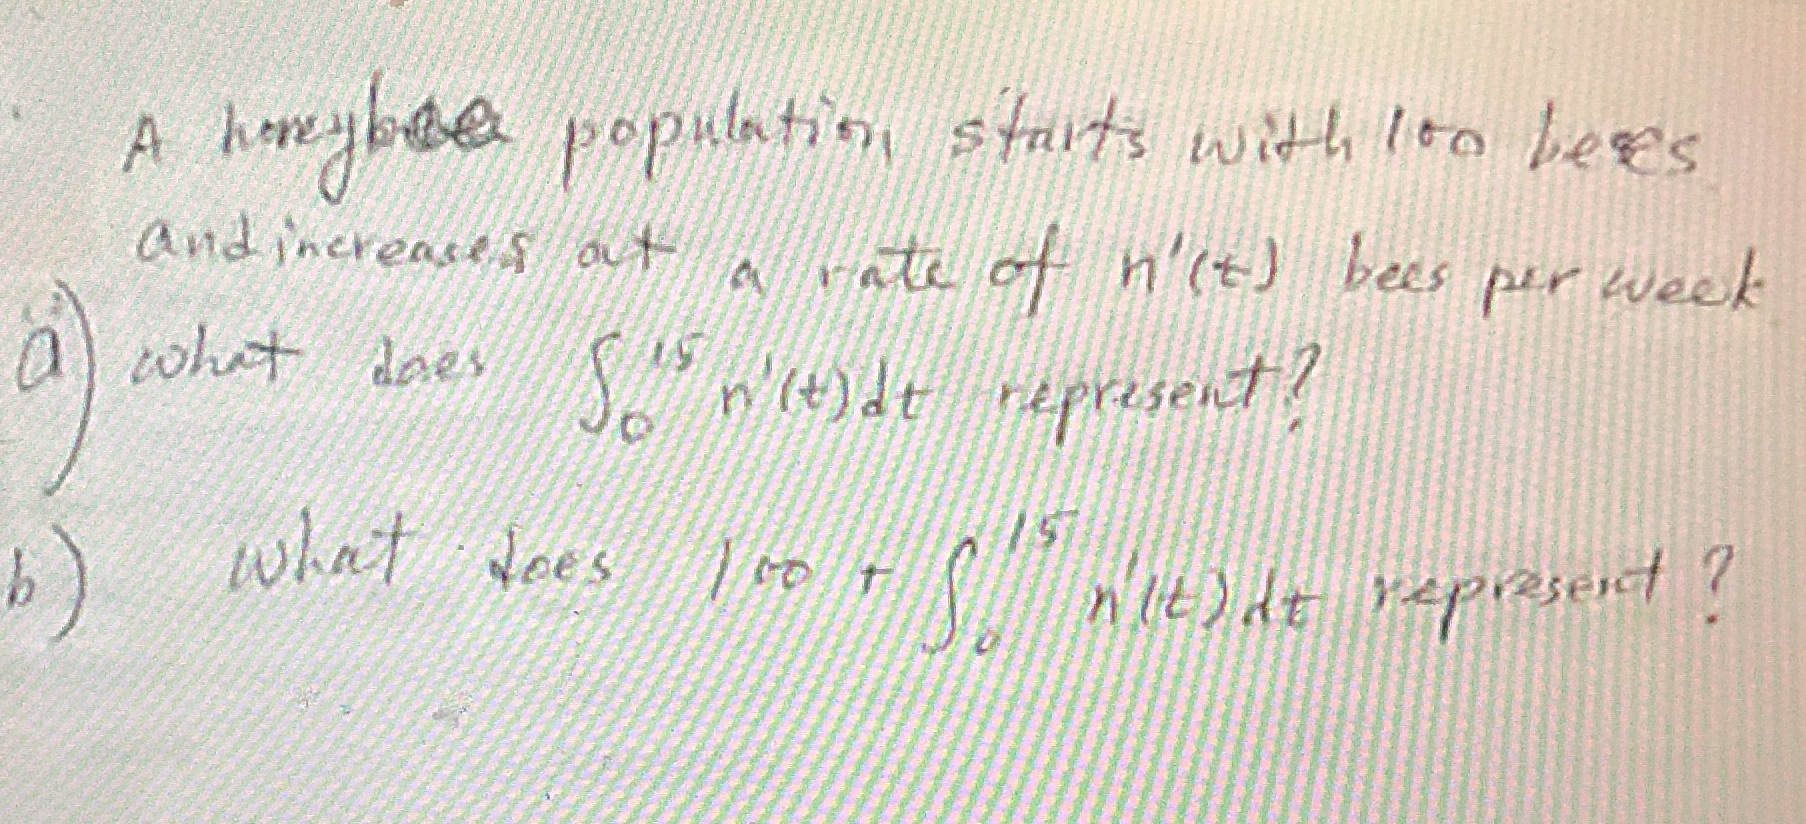 A honeybee population starts with 100 bees
and increases at a rate of n'(t) bees per week
a) what does ∫₀¹⁵ n'(t)dt represent?
b) what does 100 + ∫₀¹⁵ n'(t)dt represent?